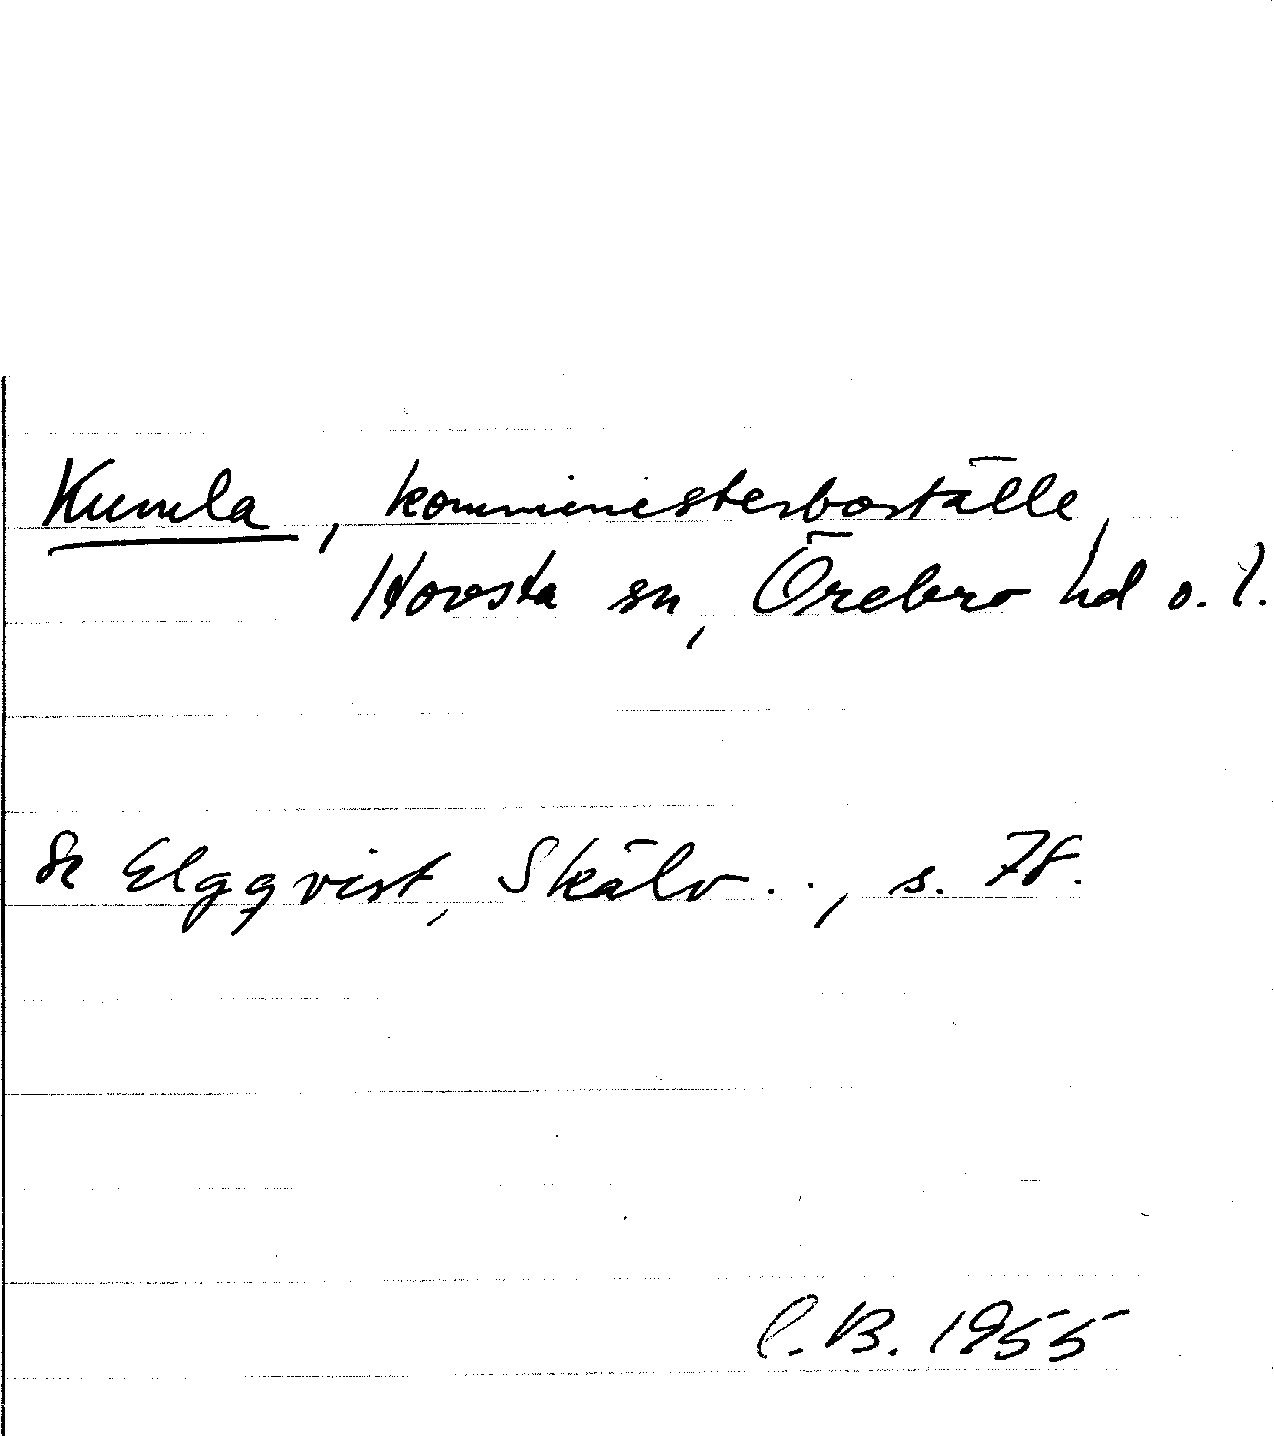 Kumla, komministerboställe,
Hovsta sn, Örebro hd o. l.
Se Elgqvist, Skälv . . , s. 78.
C. B. 1955